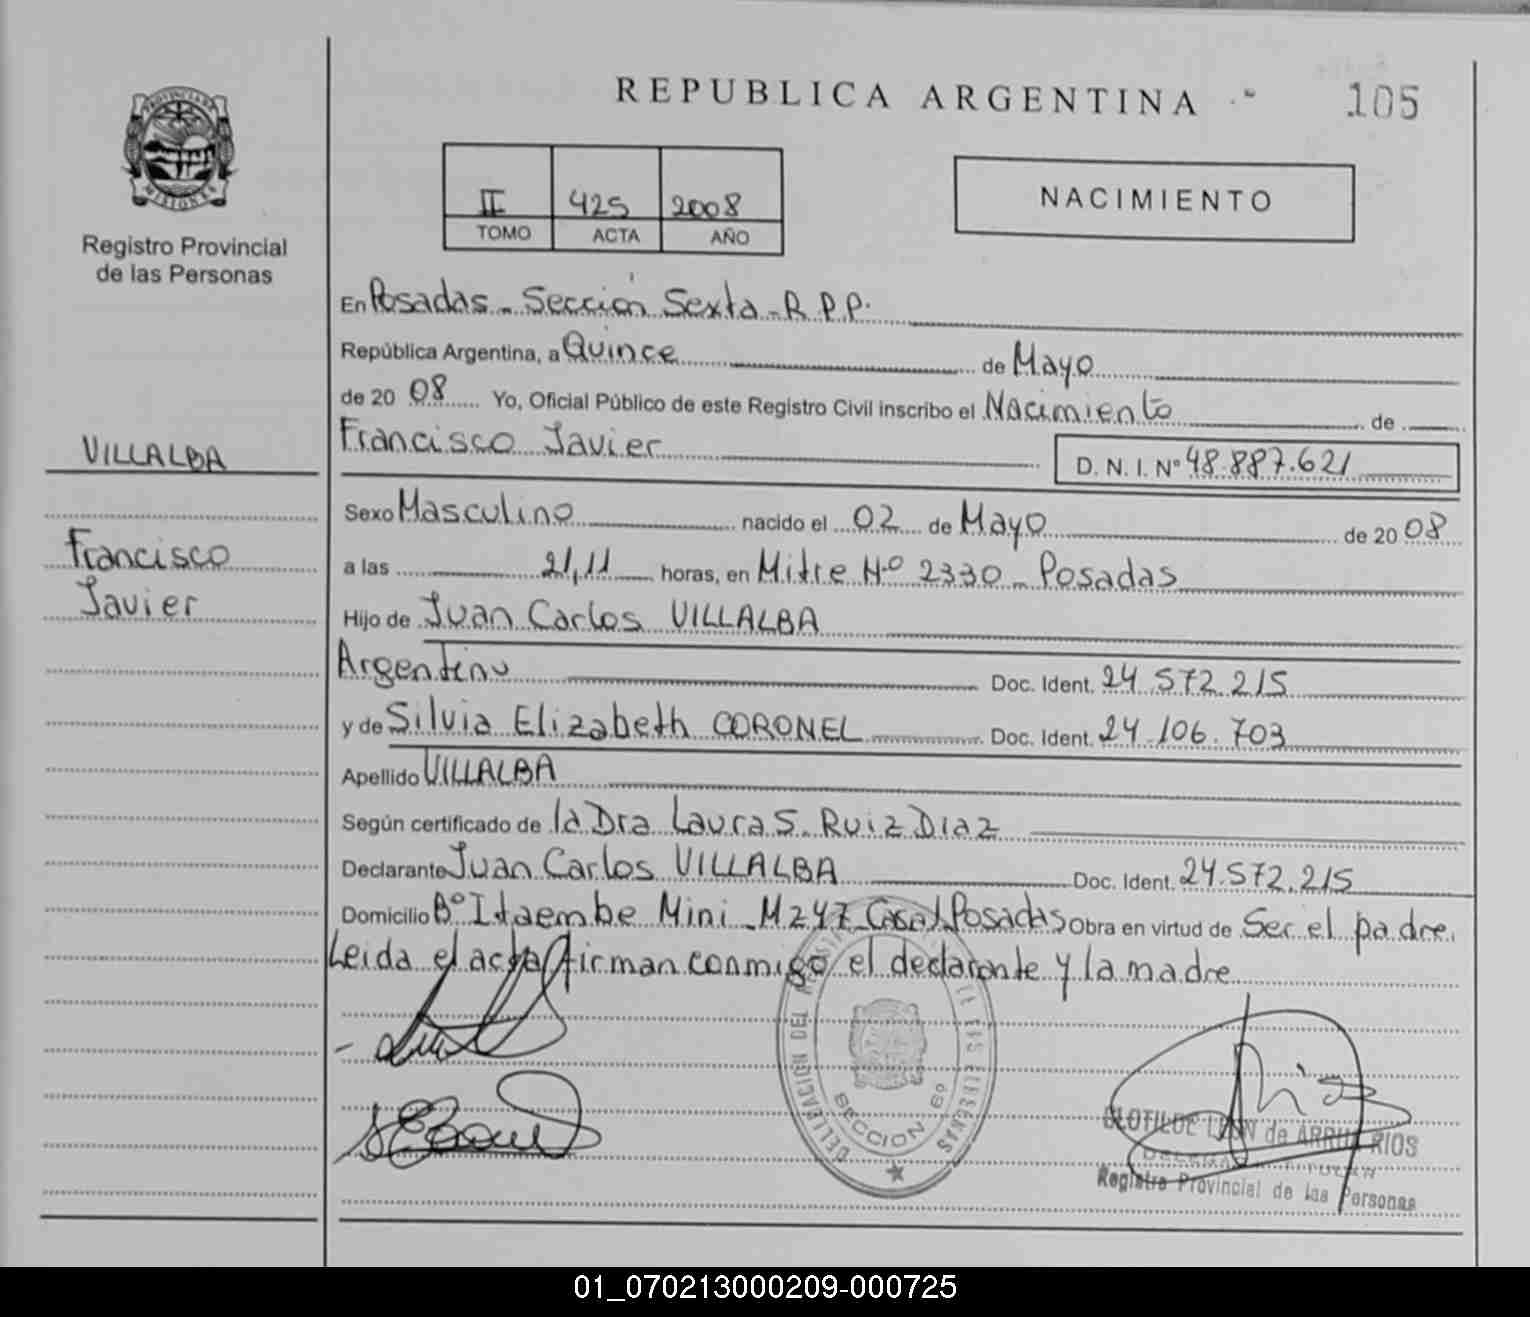 REPUBLICA ARGENTINA
105
PROVINCIA DE
MISIONES
Registro Provincial
de las Personas
II 425 2008
TOMO ACTA AÑO
NACIMIENTO
En Posadas - Sección Sexta - R.P.P.
República Argentina, a Quince de Mayo
de 20 08 Yo, Oficial Público de este Registro Civil inscribo el Nacimiento de
Francisco Javier D. N. I. Nº 48.887.621
VILLALBA
Francisco
Javier
Sexo Masculino nacido el 02 de Mayo de 20 08
a las 21,11 horas, en Mitre Nº 2330 - Posadas
Hijo de Juan Carlos VILLALBA
Argentino Doc. Ident. 24.572.215
y de Silvia Elizabeth CORONEL Doc. Ident. 24.106.703
Apellido VILLALBA
Según certificado de la Dra Laura S. Ruiz Diaz
Declarante Juan Carlos VILLALBA Doc. Ident. 24.572.215
Domicilio Bº Itaembe Mini - Mz 47 Casa 1 Posadas Obra en virtud de Ser el padre.
Leida el acta firman conmigo el declarante y la madre
DELEGACION DEL REGISTRO DE LAS PERSONAS
SECCION 6º
CLOTILDE LEON de ARRUA RIOS
DELEGADA TITULAR
Registro Provincial de las Personas
01_070213000209-000725